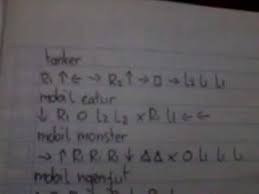 tanker
R1 ↑ ← → R2 ↑ → □ → L2 L1 L1
mobil catur
↓ R1 O L2 L2 × R1 L1 ← ←
mobil monster
→ ↑ R1 R1 R1 ↓ △ △ × O L1 L1 L1
mobil ngenjut